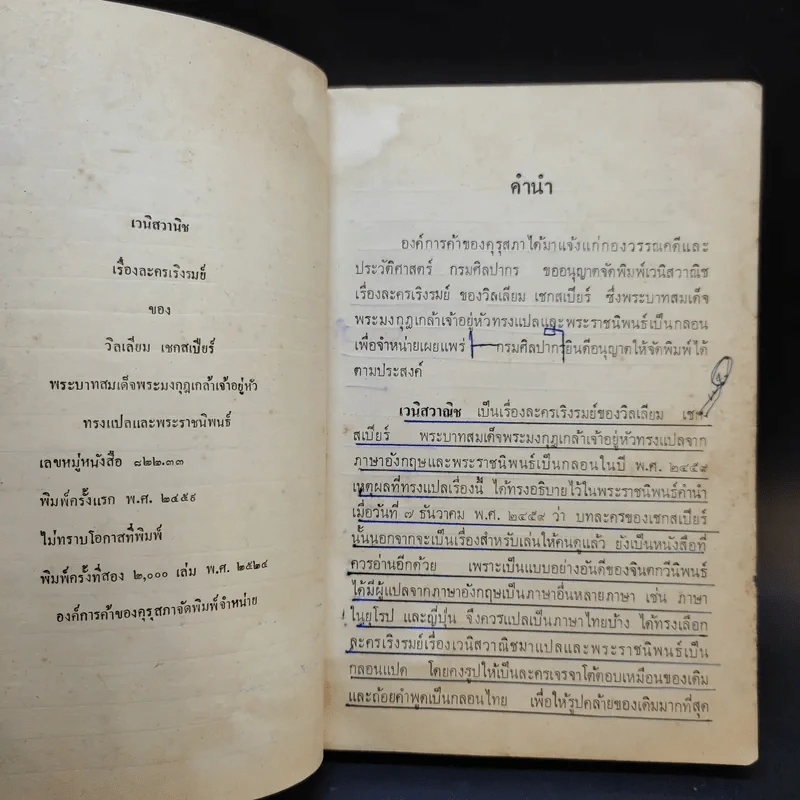 เวนิสวานิช
เรื่องละครเริงรมย์
ของ
วิลเลียม เชกสเปียร์
พระบาทสมเด็จพระมงกุฎเกล้าเจ้าอยู่หัว
ทรงแปลและพระราชนิพนธ์
เลขหมู่หนังสือ ๘๒๒.๓๓
พิมพ์ครั้งแรก พ.ศ. ๒๔๕๙
ไม่ทราบโอกาสที่พิมพ์
พิมพ์ครั้งที่สอง ๒,๐๐๐ เล่ม พ.ศ. ๒๕๒๔
องค์การค้าของคุรุสภาจัดพิมพ์จำหน่าย
คำนำ
องค์การค้าของคุรุสภาได้มาแจ้งแก่กองวรรณคดีและ
ประวัติศาสตร์ กรมศิลปากร ขออนุญาตจัดพิมพ์เวนิสวาณิช
เรื่องละครเริงรมย์ ของวิลเลียม เชกสเปียร์ ซึ่งพระบาทสมเด็จ
พระมงกุฎเกล้าเจ้าอยู่หัวทรงแปลและพระราชนิพนธ์เป็นกลอน
เพื่อจำหน่ายเผยแพร่ กรมศิลปากรยินดีอนุญาตให้จัดพิมพ์ได้
ตามประสงค์
เวนิสวาณิช เป็นเรื่องละครเริงรมย์ของวิลเลียม เชก
สเปียร์ พระบาทสมเด็จพระมงกุฎเกล้าเจ้าอยู่หัวทรงแปลจาก
ภาษาอังกฤษและพระราชนิพนธ์เป็นกลอนในปี พ.ศ. ๒๔๕๙
เหตุผลที่ทรงแปลเรื่องนี้ ได้ทรงอธิบายไว้ในพระราชนิพนธ์คำนำ
เมื่อวันที่ ๗ ธันวาคม พ.ศ. ๒๔๕๙ ว่า บทละครของเชกสเปียร์
นั้นนอกจากจะเป็นเรื่องสำหรับเล่นให้คนดูแล้ว ยังเป็นหนังสือที่
ควรอ่านอีกด้วย เพราะเป็นแบบอย่างอันดีของจินตกวีนิพนธ์
ได้มีผู้แปลจากภาษาอังกฤษเป็นภาษาอื่นหลายภาษา เช่น ภาษา
ในยุโรป และญี่ปุ่น จึงควรแปลเป็นภาษาไทยบ้าง ได้ทรงเลือก
ละครเริงรมย์เรื่องเวนิสวาณิชมาแปลและพระราชนิพนธ์เป็น
กลอนแปด โดยคงรูปให้เป็นละครเจรจาโต้ตอบเหมือนของเดิม
และถ้อยคำพูดเป็นกลอนไทย เพื่อให้รูปคล้ายของเดิมมากที่สุด